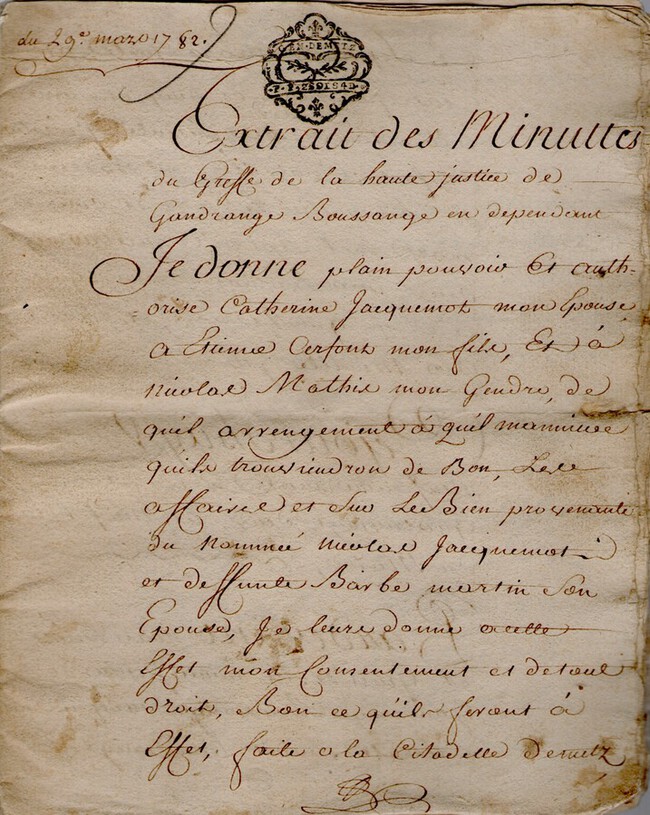 du 29e. mars 1782.
GEN. DE METZ
Extrait des Minuttes
du Greffe de la haute justice de
Gandrange Boussange en dependant
Je donne plain pouvoir Et auth-
-orise Catherine Jacquemot mon Epouse
a Etienne Cerfont mon fils, Et á
Nicolas Mathis mon Gendre, de
quel arrengement á quel manniere
quils trouviendron de Bon, Les
affaires et sur Les Bien provenante
du nommé Nicolas Jacquemot
et deffunte Barbe martin Son
Epouse, Je leurs donne a cette
Effet mon Consentement et de tout
droit, Bon ce quils feront á
Effet, faite a la Citadelle de metz